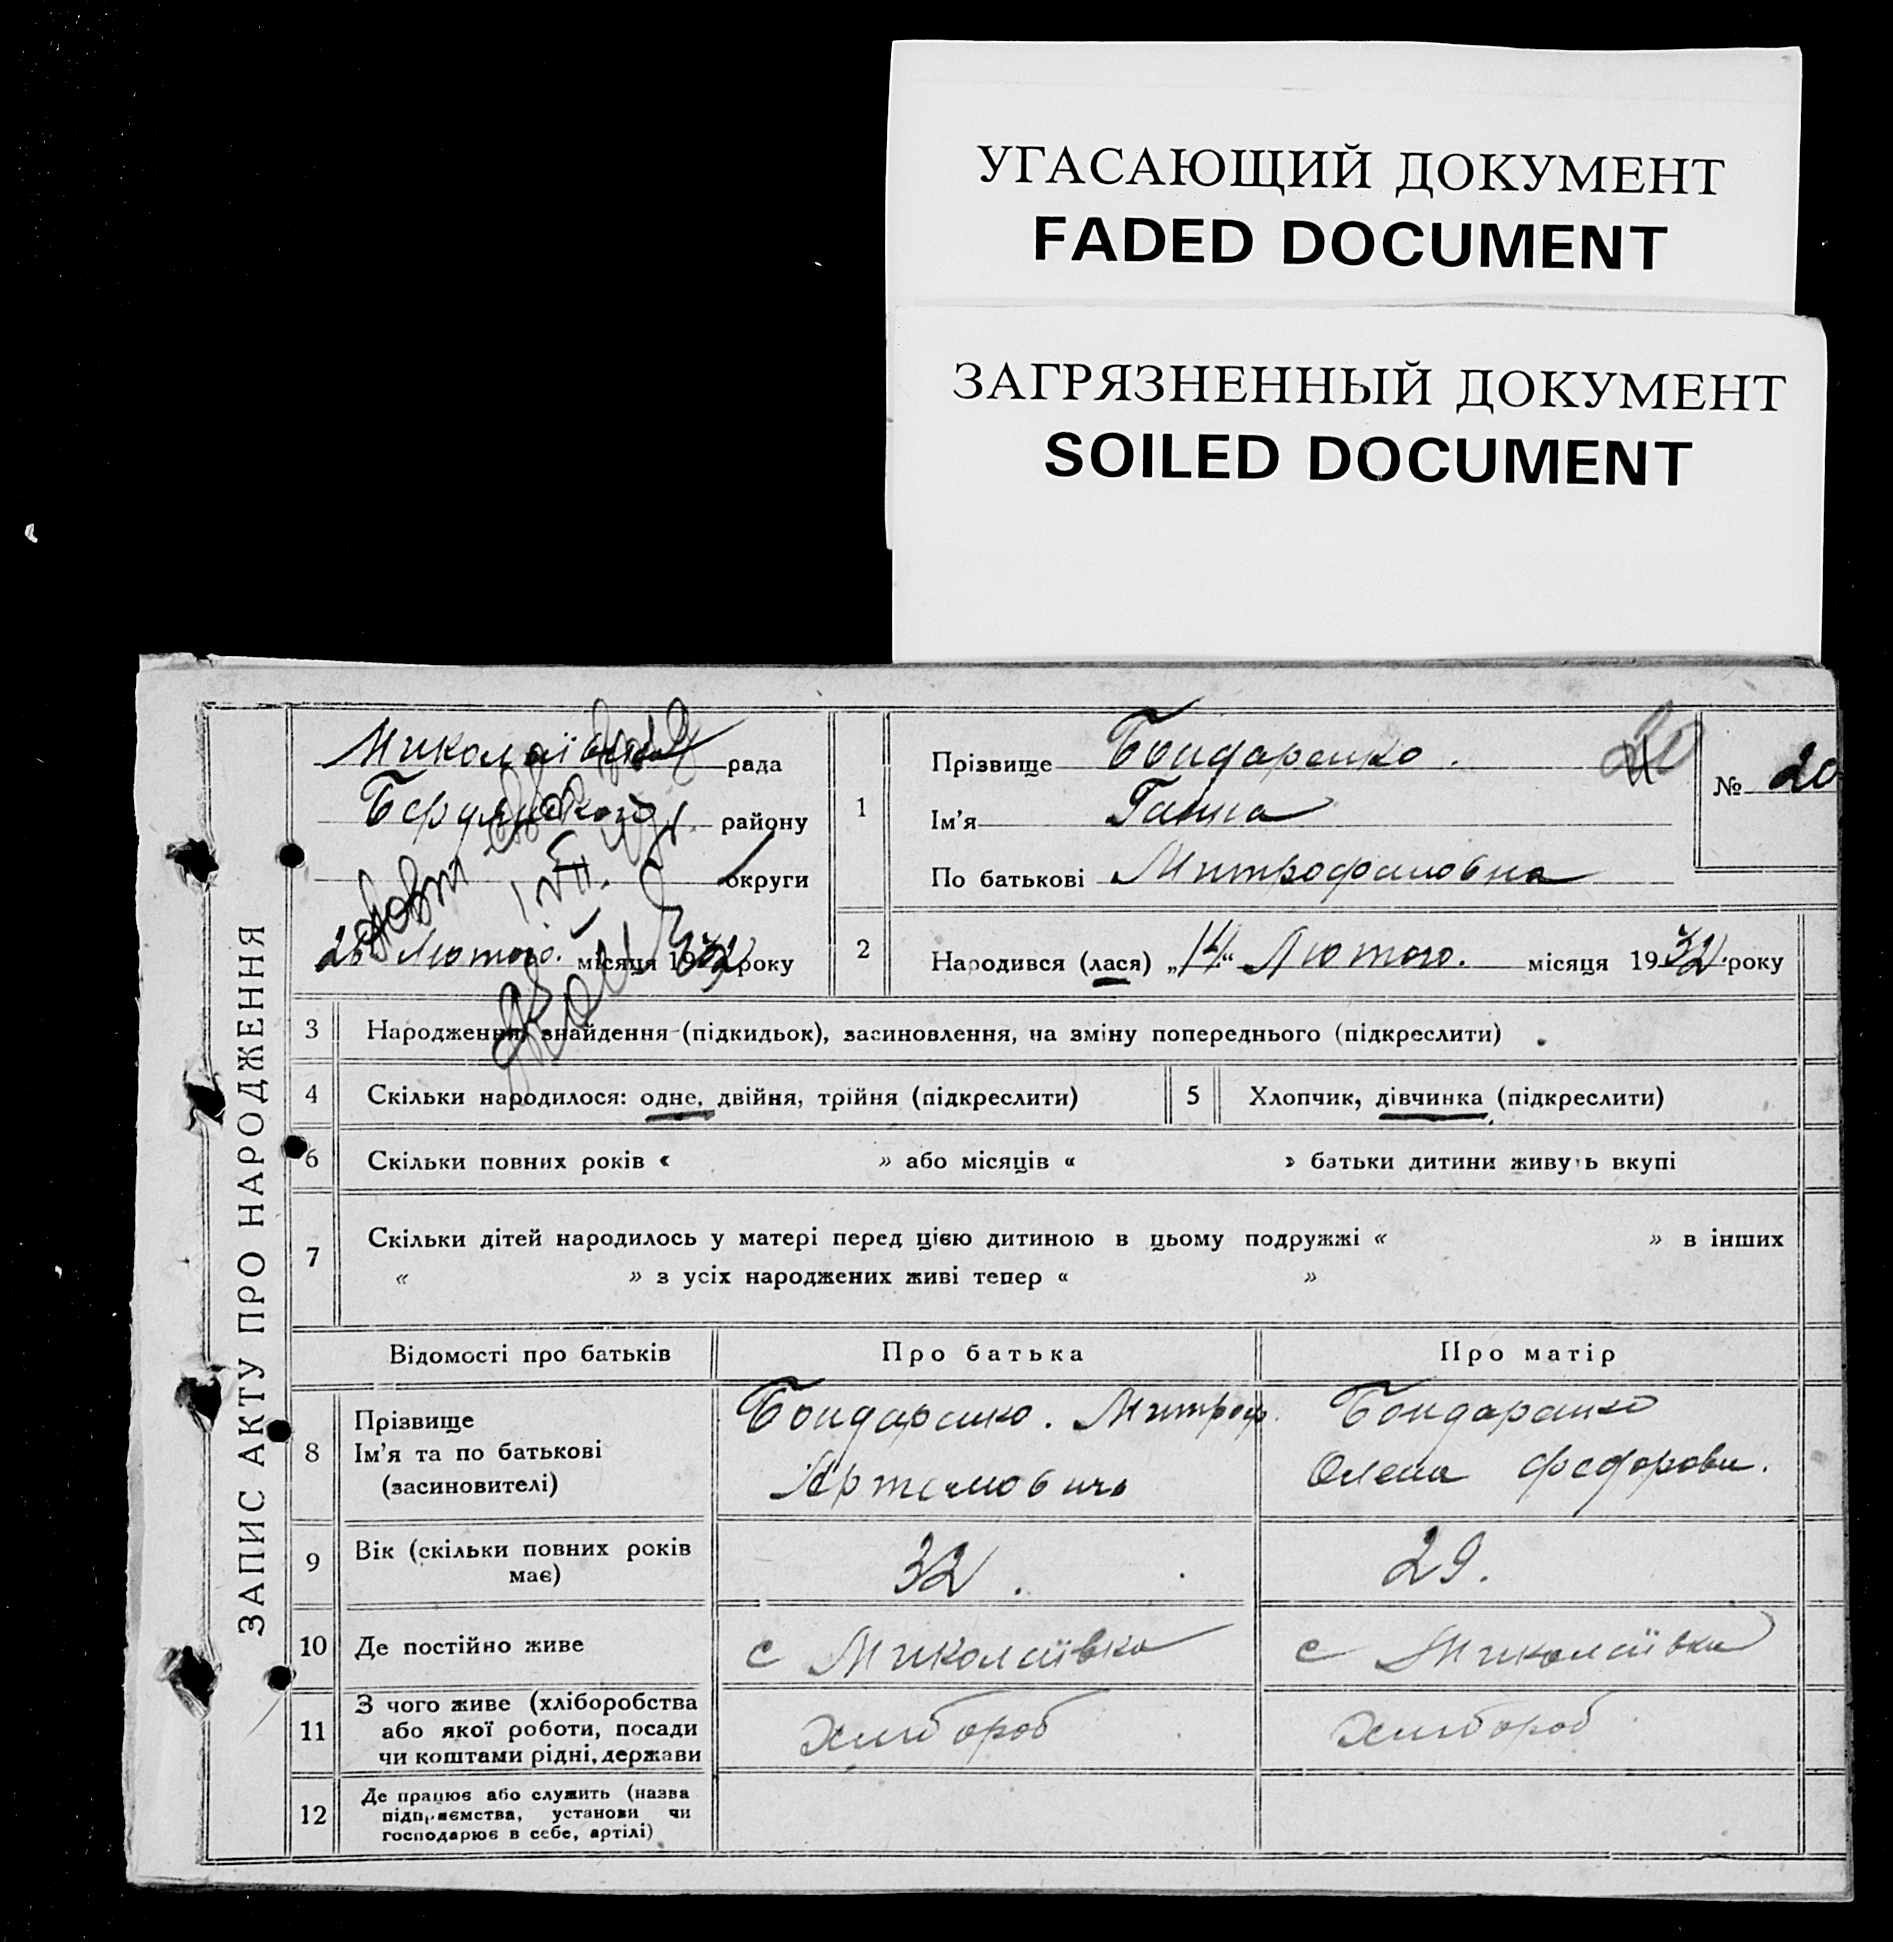 УГАСАЮЩИЙ ДОКУМЕНТ
FADED DOCUMENT
ЗАГРЯЗНЕННЫЙ ДОКУМЕНТ
SOILED DOCUMENT
ЗАПИС АКТУ ПРО НАРОДЖЕННЯ
Миколаївська рада
Бердянського району
округи
Лютого місяця 1932 року
1
Прізвище Бондаренко.
Ім'я Ганна
По батькові Митрофановна
№ 20
2
Народився (лася) „14" Лютого. місяця 1932 року
3 Народження, знайдення (підкидьок), засиновлення, на зміну попереднього (підкреслити)
4 Скільки народилося: одне, двійня, трійня (підкреслити)
5 Хлопчик, дівчинка (підкреслити)
6 Скільки повних років « » або місяців « » батьки дитини живуть вкупі
7 Скільки дітей народилось у матері перед цією дитиною в цьому подружжі « » в інших
« » з усіх народжених живі тепер « »
Відомості про батьків Про батька Про матір
8
Прізвище
Ім'я та по батькові
(засиновителі)
Бондаренко. Митроф.
Артемович
Бондаренко
Олена Федоровн.
9 Вік (скільки повних років
має)
32.
29.
10 Де постійно живе
с Миколаївка
с Миколаївка
11
З чого живе (хліборобства
або якої роботи, посади
чи коштами рідні, держави
хлибороб
хлибороб
12
Де працює або служить (назва
підприємства, установи чи
господарює в себе, артілі)